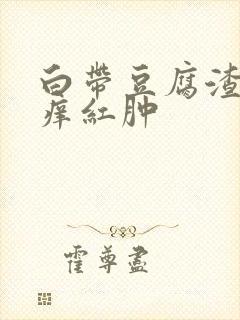 白带豆腐渣
痒红肿
霍尊尽